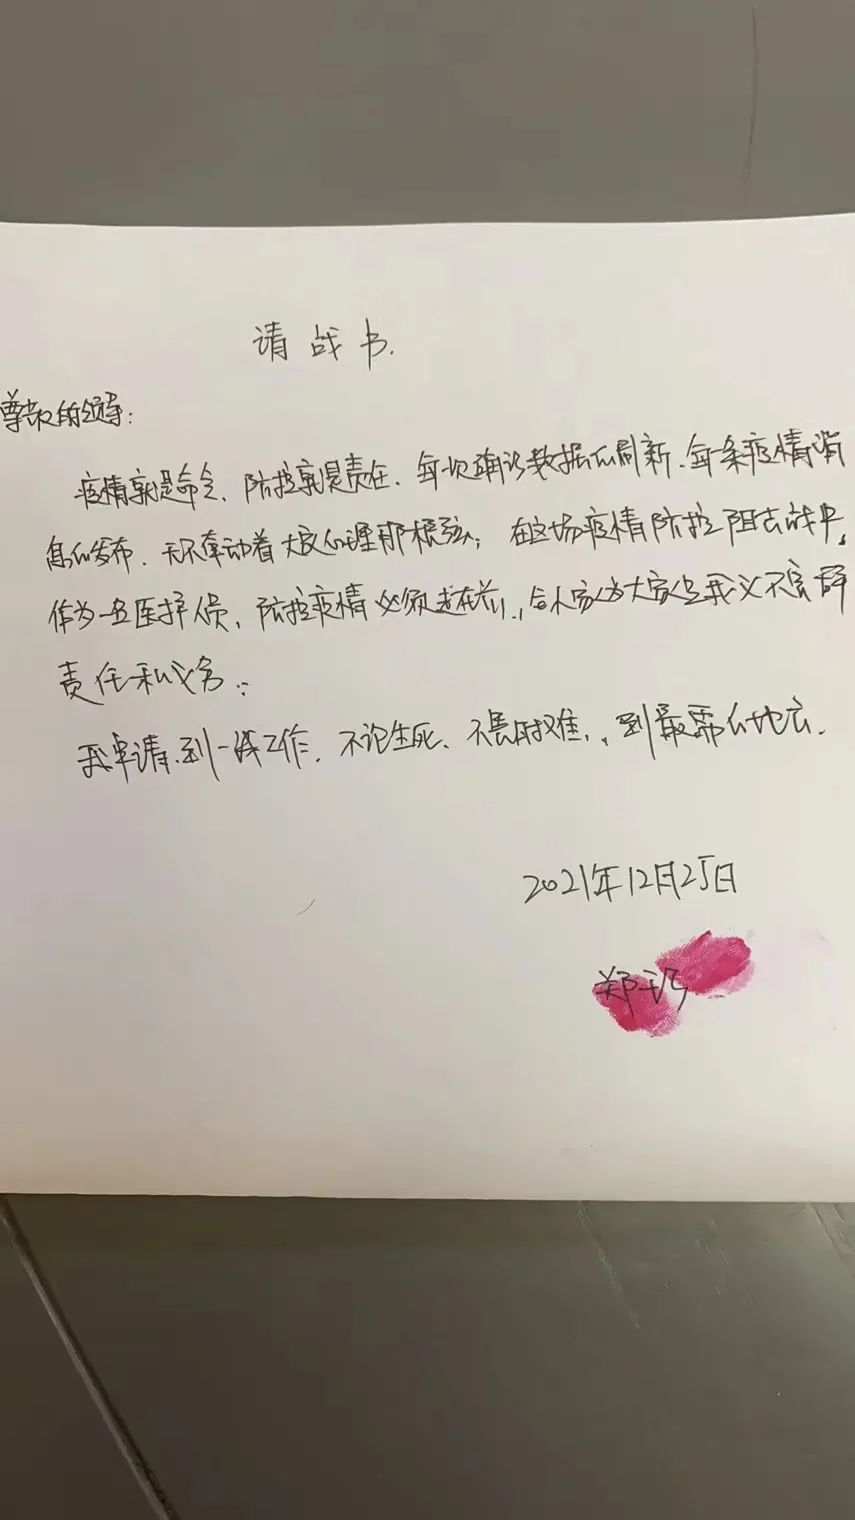 请战书.
尊敬的领导:
疫情就是命令、防控就是责任、每次确诊数据的刷新、每条疫情消
息的发布、无不牵动着大家心理那根弦; 在这场疫情防控阻击战中,
作为一名医护人员、防控疫情必须走在前,,舍小家为大家是我义不容辞
责任和义务:
我申请、到一线工作、不论生死、不畏艰难,、到最需的地方.
2021年12月25日
郑